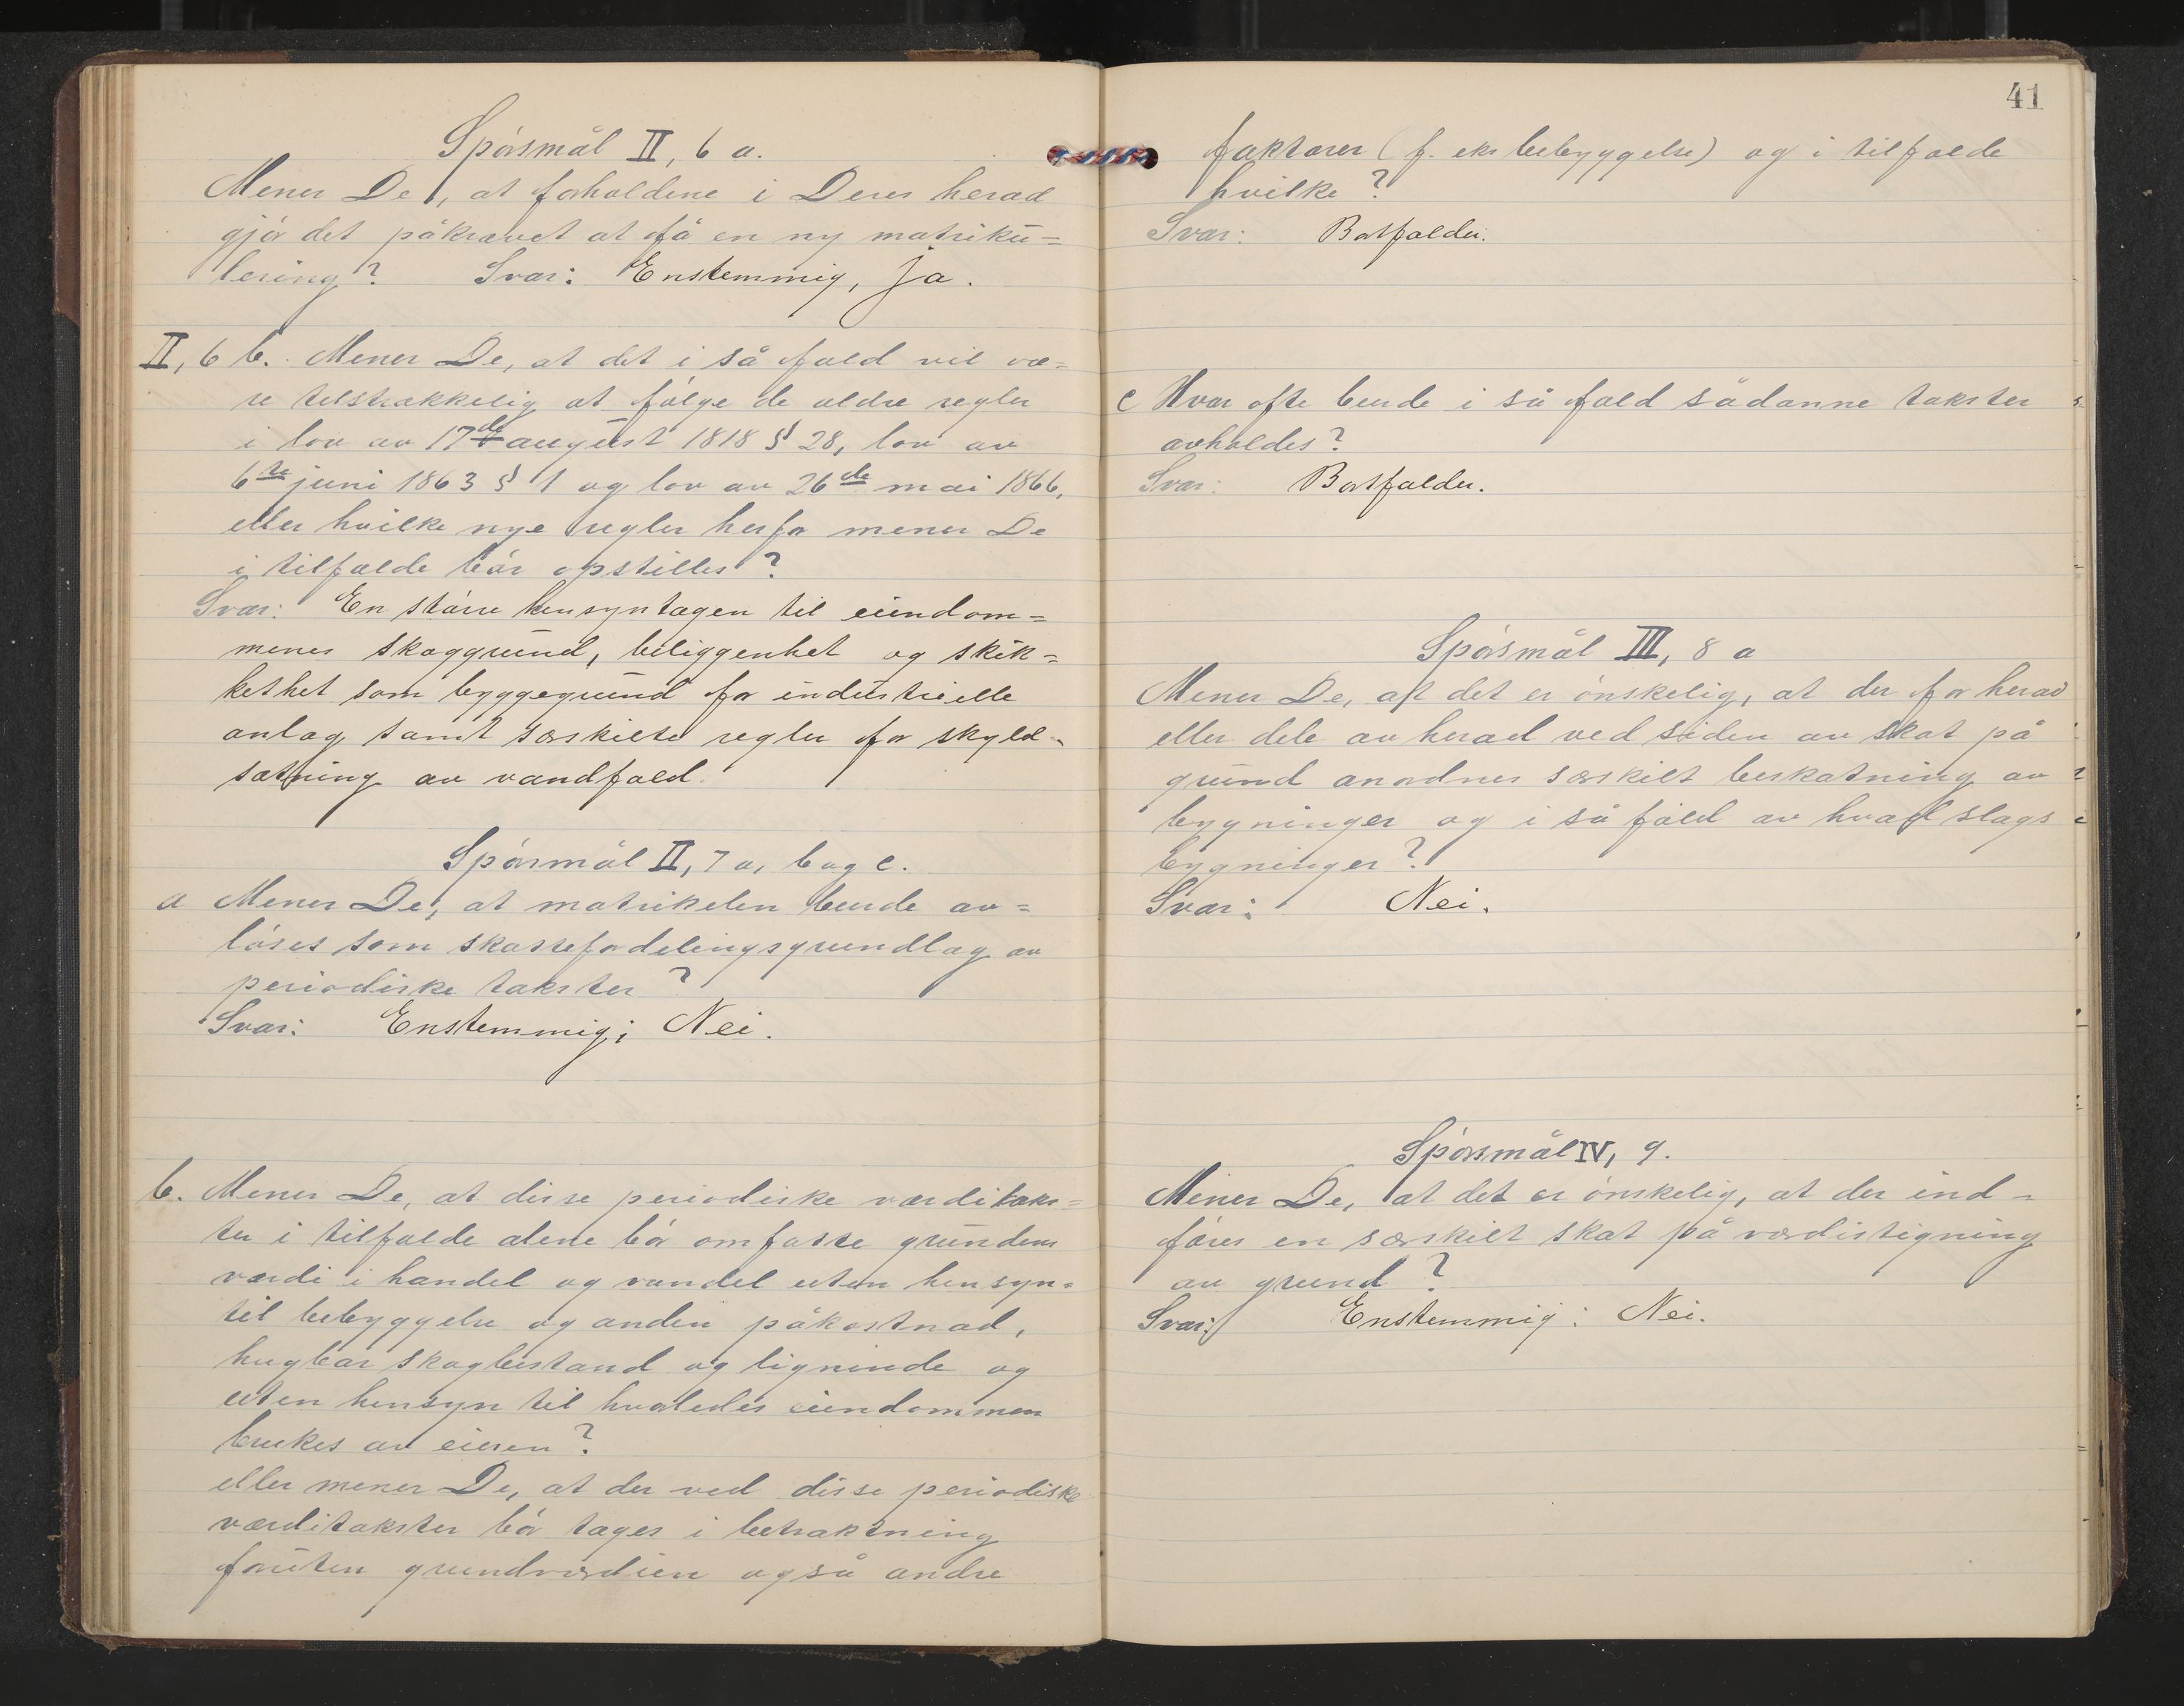 Spørsmål II, 6 a.
Mener De, at forholdene i Deres herad
gjør det påkrævet at få en ny matriku=
lering? Svar: Enstemmig, ja.
II, 6 b. Mener De, at det i så fald vil væ=
re telstrækkelig at følge de ældre regler
i lov av 17de august 1818 § 28, lov av
6te juni 1863 § 1 og lov av 26de mai 1866,
eller hvilke nye regler herfor mener De
i tilfælde bør opstilles?
Svar: En større hensyntagen til eiendom=
menes skoggrund, beliggenhet og skik=
kethet som byggegrund for industrielle
anlæg samt særskilte regler for skyld-
sætning av vandfald.
Spørsmål II, 7 a, b og c.
a Mener De, at matrikelen burde av=
løses som skattefordelingsgrundlag av
periodiske takster?
Svar: Enstemmig; Nei.
b. Mener De, at disse periodiske værditaks=
ter i tilfælde alene bør omfatte grundens
værdi i handel og vandel uten hensyn=
til bebyggelse og anden påkostnad,
hugbar skogbestand og lignende og
uten hensyn til hvorledes eiendommen
brukes av eieren?
eller mener De, at der ved disse periodiske
værditakster bør tages i betraktning
foruten grundværdien også andre
41
faktorer (f. eks bebyggelse) og i tilfælde
hvilke?
Svar: Bortfalder.
c Hvor ofte burde i så fald sådanne takster
avholdes?
Svar: Bortfalder.
Spørsmål III, 8 a
Mener De, at det er ønskelig, at der for herad
eller dele av herad ved siden av skat på
grund anordnes særskilt beskatning av
bygninger og i så fald av hvad slags
bygninger?
Svar: Nei.
Spørsmål IV, 9.
Mener De, at det er ønskelig, at der ind=
føres en særskilt skat på værdistigning
av grund?
Svar: Enstemmig: Nei.